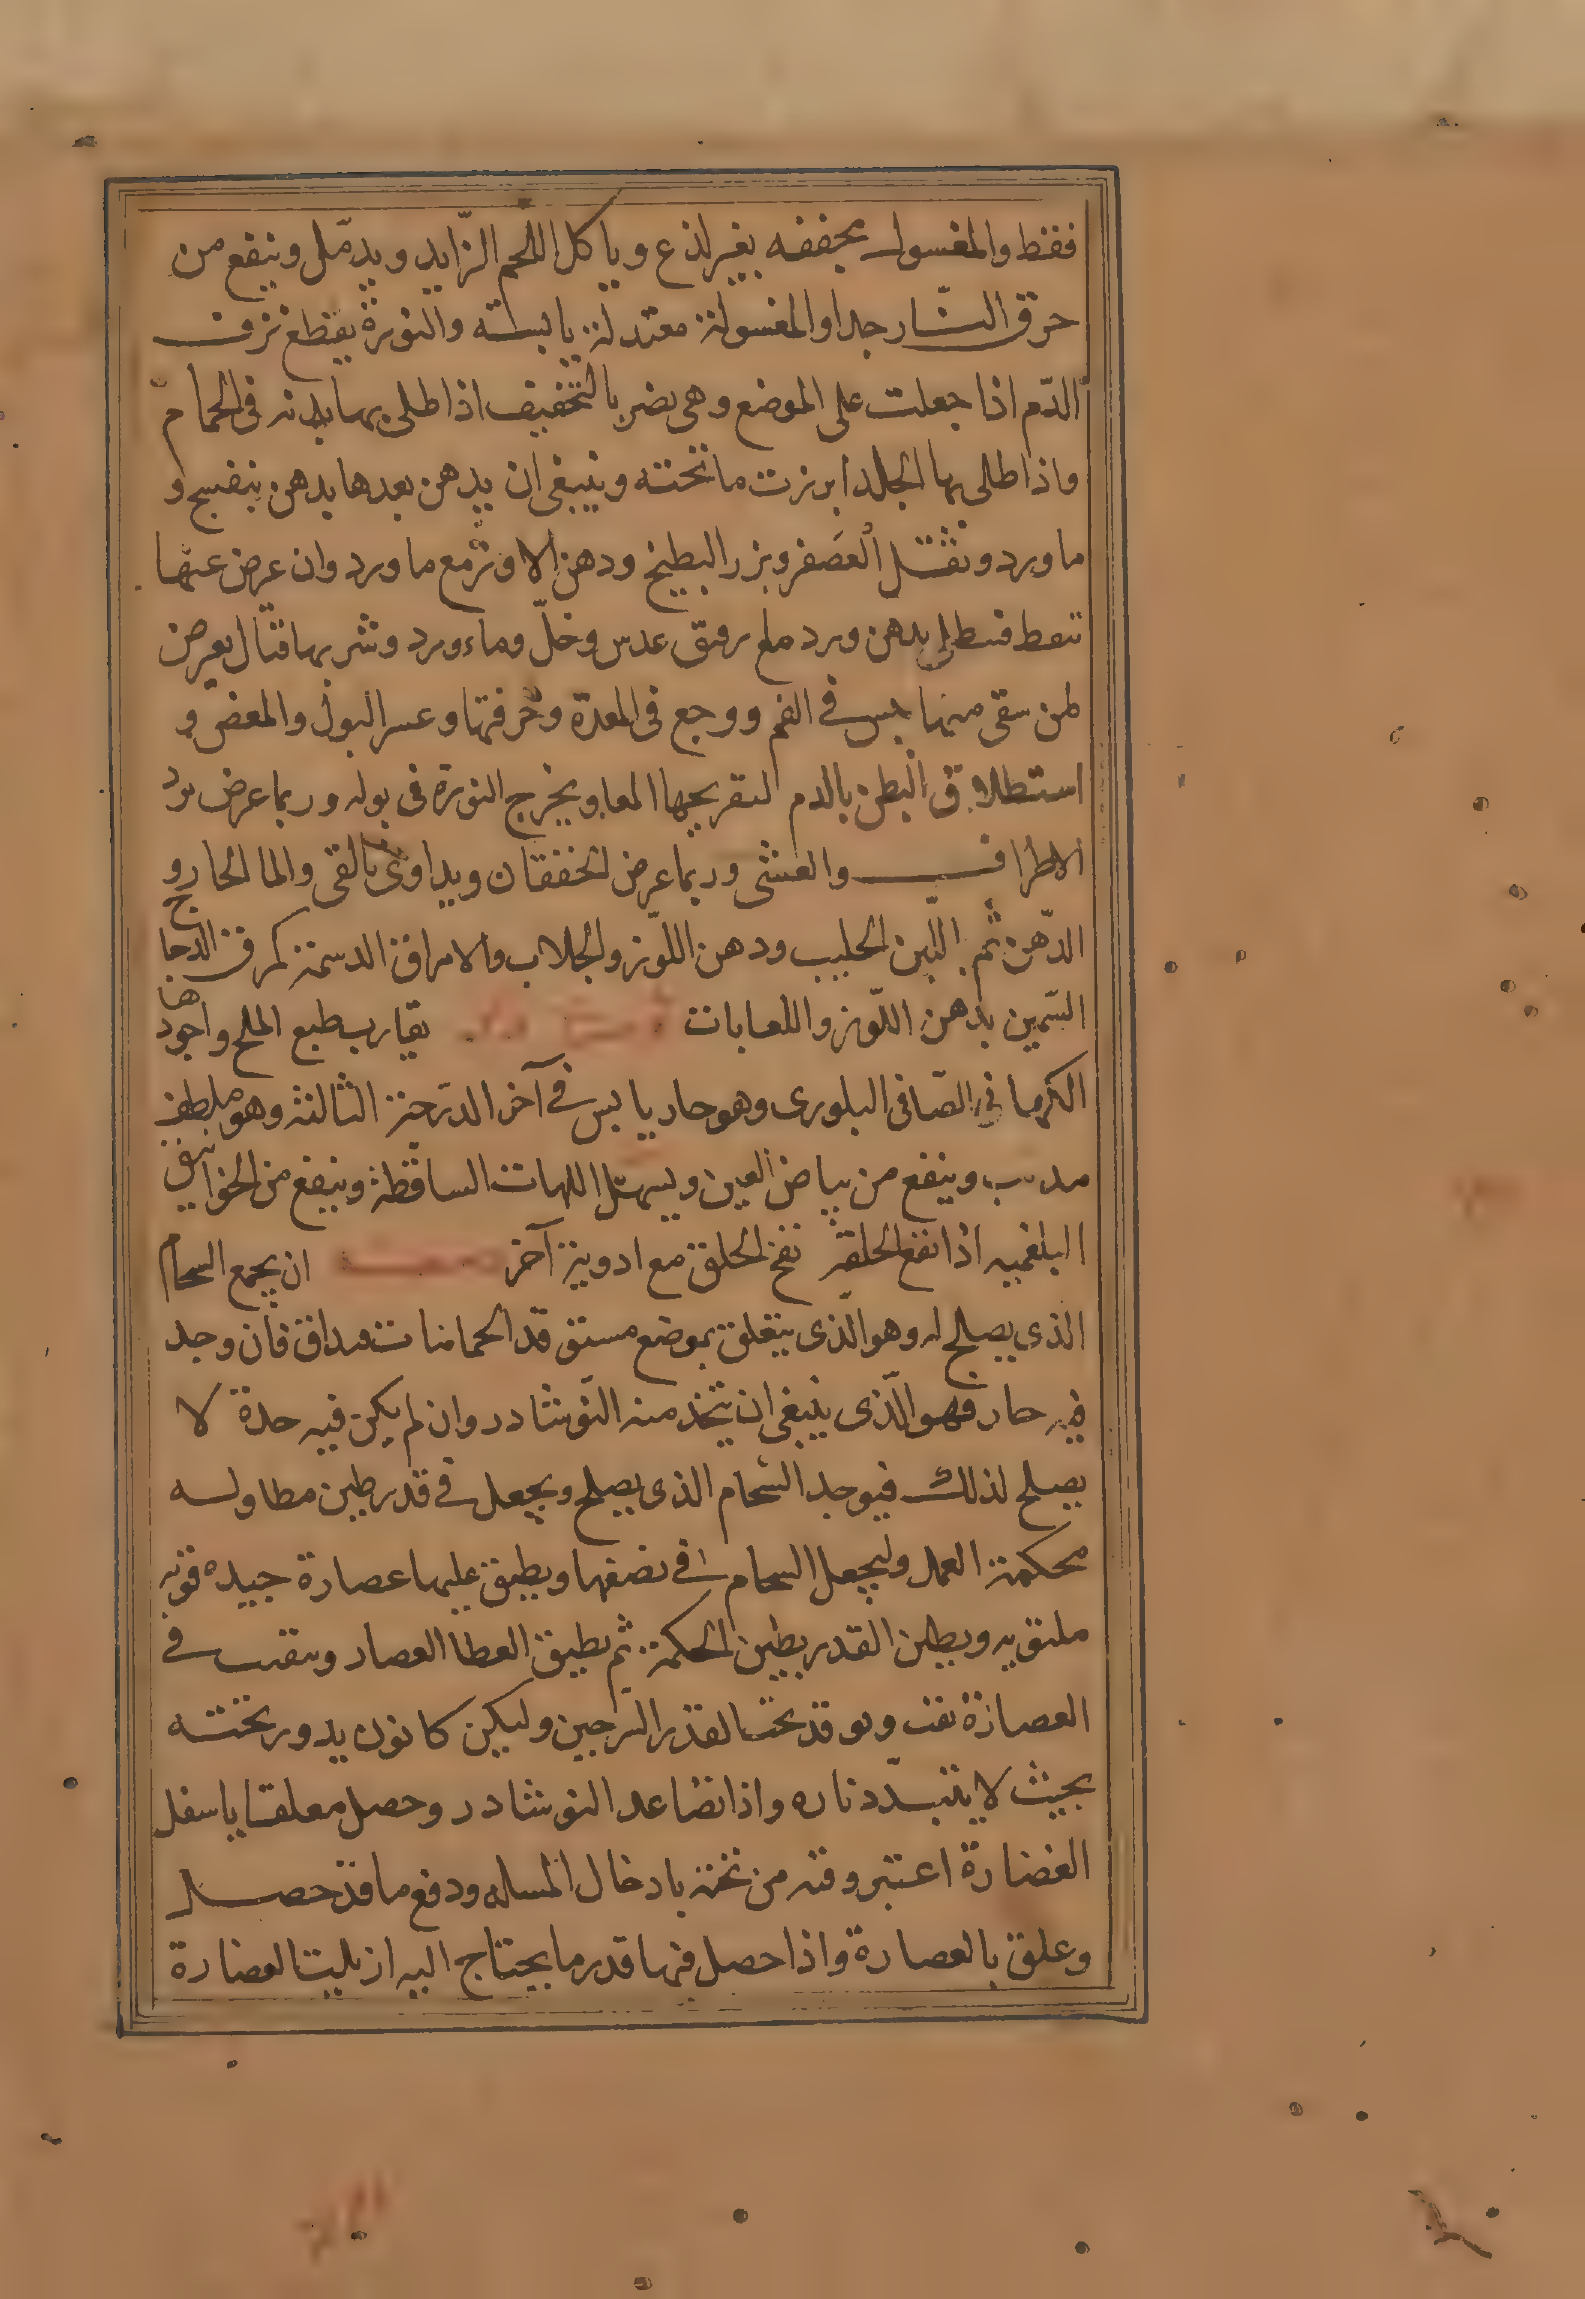 فقط والمغسول يجففه بغير لذع وياكل اللحم الزّايد ويدمّل وينفع من
حرق النّار جدا والمغسولة معتدلة يابسته والنورة يقطع نزف
الدّم اذا جعلت على الموضع وهى يضر بالتخفيف اذا طلى بها بدنه فى الحمام
واذا طلى بها الجلد ابرزت ما تحته وينبغى ان يدهن بعدها بدهن بنفسج و
ماورد وثفل العصفر وبزر البطيخ ودهن الاوز مع ماورد وان عرض عنها
تنفط فيطلى بدهن ورد مع عدس وخلّ وماء ورد وشربها قتال يعرض
لمن سقى منها يبس فى الفم ووجع فى المعدة وحرقتها وعسر البول والمغص و
استطلاق البطن بالدم لتقريحها المعا ويخرج النورة فى بوله وربما عرض برد
الاطراف والغشى وربما عرض الخفقان ويداوى بالقى والما الحار و
الدّهن ثم اللبن الحليب ودهن اللوز والجلاب والامراق الدسمة كمرق الدجاج
السّمين بدهن اللّوز واللعابات يقارب طبع الملح واجودها
الكرمانى الصّافى البلورى وهو حار يابس فى آخر الدرجة الثالثة وهو ملطف
مذيب وينفع من بياض العين ويسهل اللهات الساقطة وينفع من الخوانيق
البلغميه اذا نفخ الحلقة نفخ الحلق مع ادوية آخر ان يجمع السحام
الذى يصلح له وهو الّذى يتعلق بموضع مستوقد الحمامات فيداق فان وجد
فيه حار فهو الّذى ينبغى ان يتخذ منه النّوشادر وان لم يكن فيه حدة لا
يصلح لذلك فيوجد السّحام الذى يصلح ويجعل فى قدر طين مطاوله
محكمة العمل وليجعل السحام فى نصفها ويطبق عليها عصارة جيده قويه
ويطين القدر بطين الحكمة ثم يطبق الغطا العصار ويثقب فى
العصارة ثقب ويوقد تحت القدر السرجين وليكن كانون يدور تحته
بحيث لا يتبدّد ناره واذا تصاعد النوشادر وحصل معلقا باسفل
الغضارة اعتبر وقته من تحته بادخال المسله ودفع ما قد حصل
وعلق بالعصارة واذا حصل فيها قدر ما يحتاج اليه ازيلت العضارة